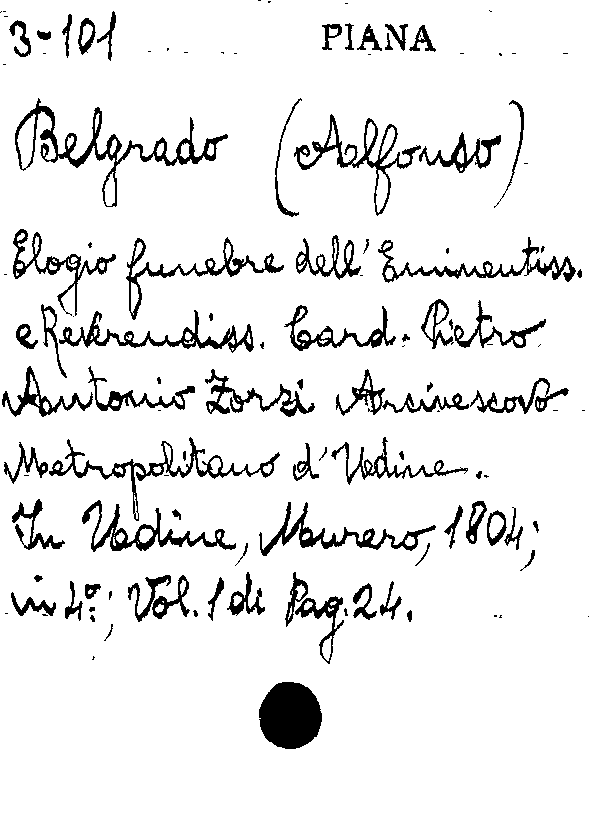 3-101 PIANA
Belgrado (Alfonso)
Elogio funebre dell' Eminentiss.
e Reverendiss. Card. Pietro
Antonio Zorzi Arcivescovo
Metropolitano d'Udine.
In Udine, Murero, 1804;
in 4.º; Vol. 1 di Pag. 24.